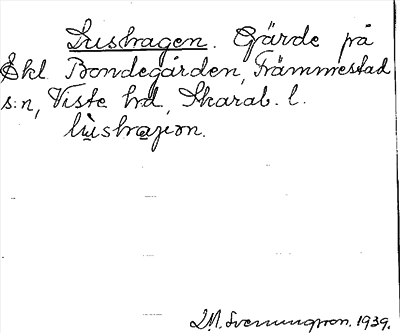 Lushagen. Gärde på
Skl. Bondegården, Främmestad
s:n, Viste hd, Skarab. l.
lùshagɷn.
J.M. Svenungsson. 1939.